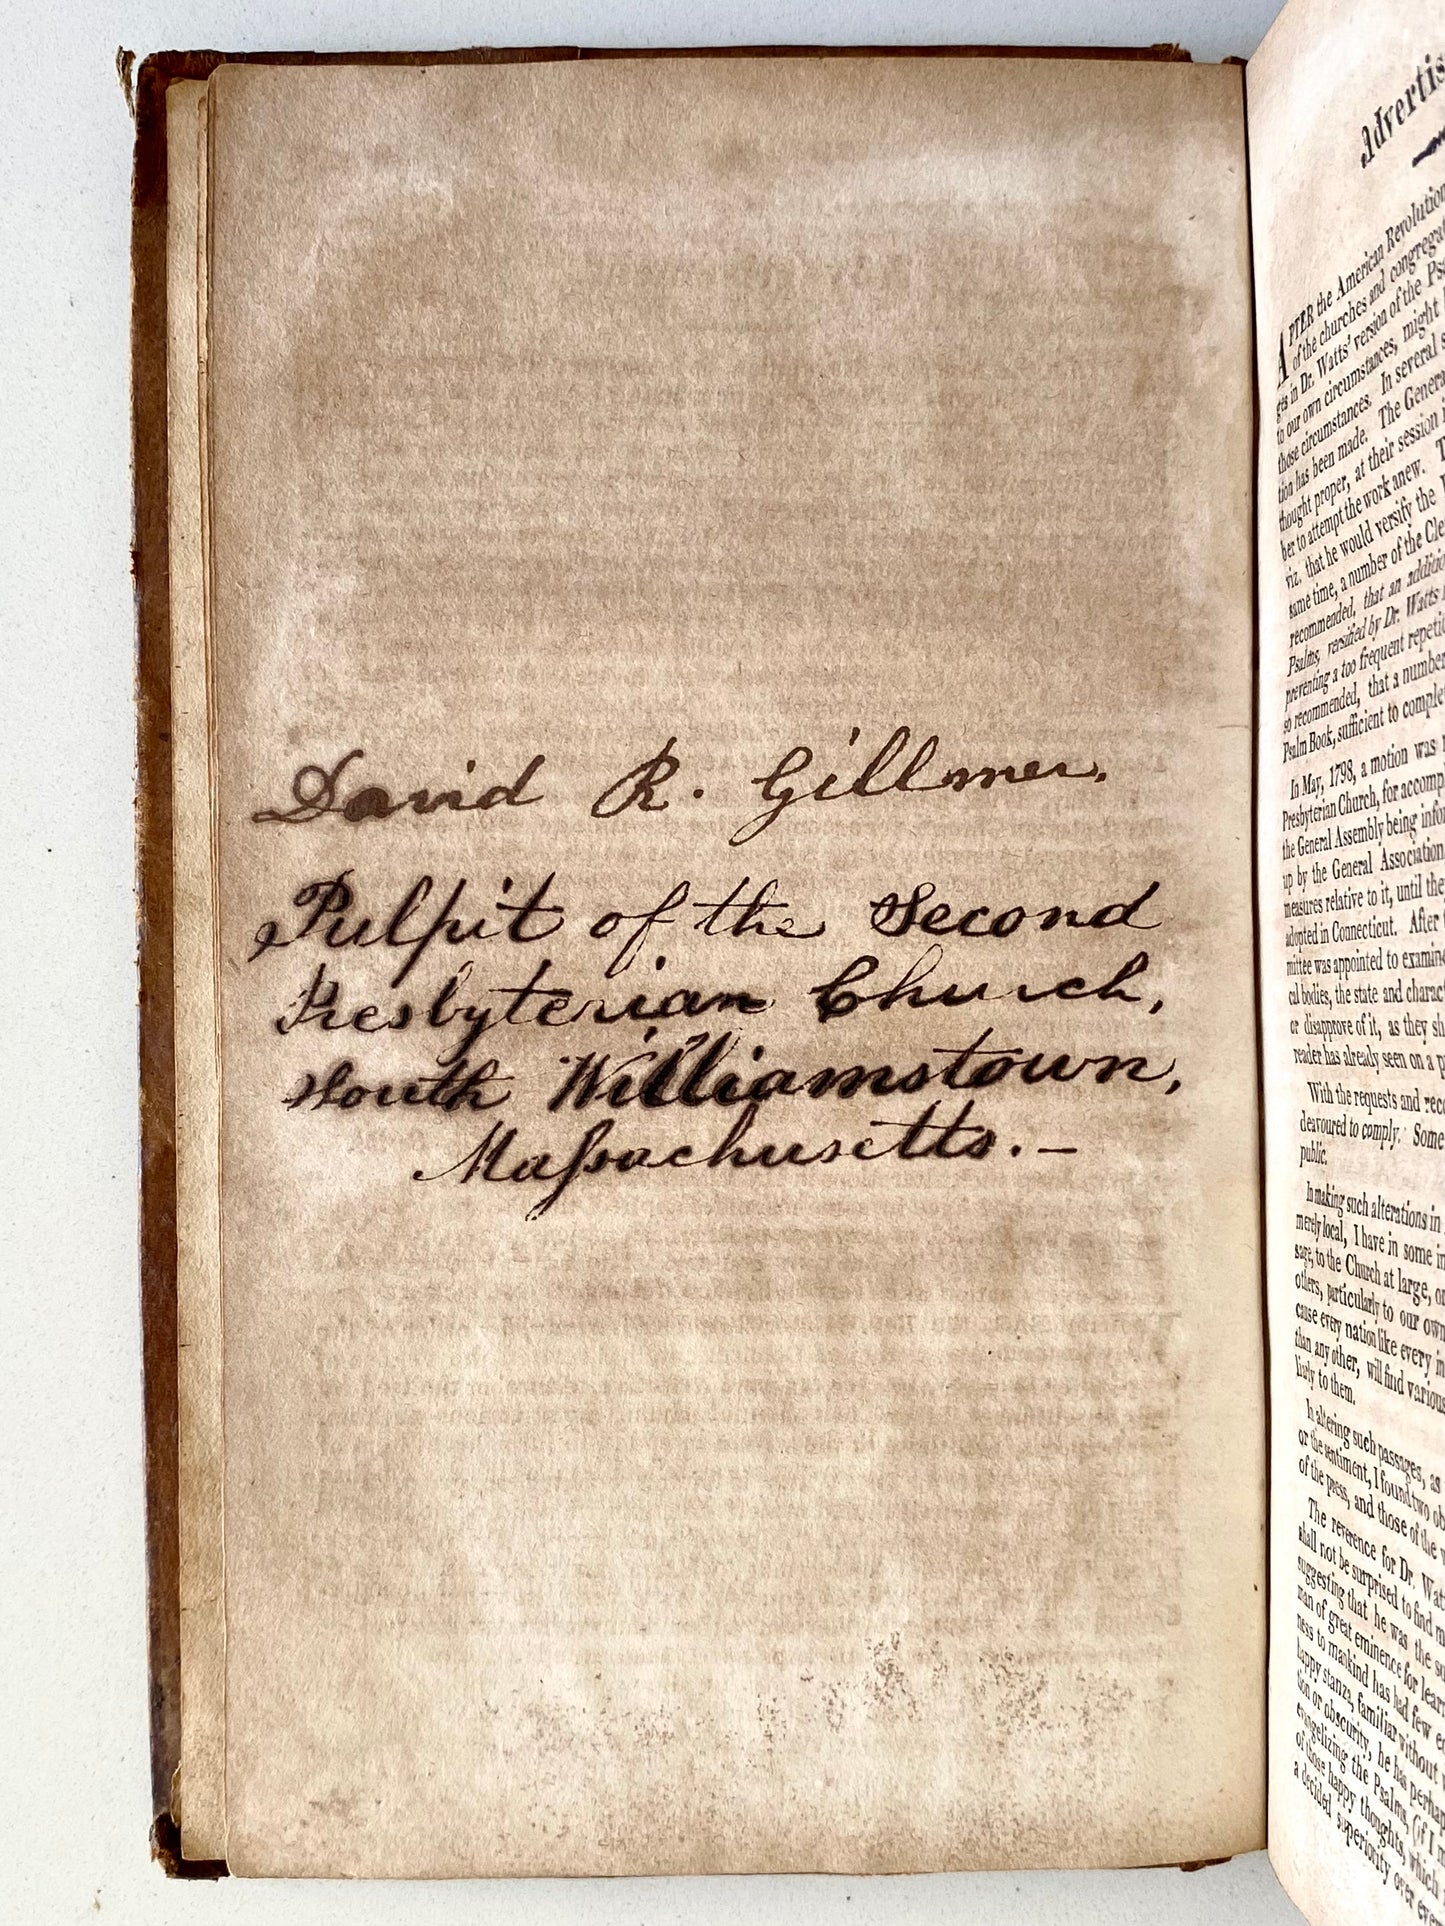 David R. Gillmer.
Pulpit of the Second
Presbyterian Church,
South Williamstown,
Massachusetts. –
Advertis
AFTER the American Revolution
of the churches and congregat
ges in Dr. Watts' version of the Ps
to our own circumstances, might
those circumstances. In several s
tion has been made. The Genera
thought proper, at their session
ber to attempt the work anew. T
viz. that he would versify the
same time, a number of the Cle
recommended, that an additio
Psalms, versified by Dr. Watts
preventing a too frequent repeti
so recommended, that a number
Psalm Book, sufficient to comple
In May, 1798, a motion was
Presbyterian Church, for accompl
the General Assembly being infor
up by the General Association
measures relative to it, until the
adopted in Connecticut. After
mittee was appointed to examine
cal bodies, the state and charact
or disapprove of it, as they sh
reader has already seen on a p
With the requests and reco
deavoured to comply. Some
public.
In making such alterations in
merely local, I have in some in
sage, to the Church at large, or
others, particularly to our own
cause every nation like every in
than any other, will find various
liarly to them.
In altering such passages, as
or the sentiment, I found two ob
of the press, and those of the w
The reverence for Dr. Wat
shall not be surprised to find m
suggesting that he was the su
man of great eminence for learn
ness to mankind has had few e
happy stanza, familiar without
tion or obscurity, he has perhap
evangelizing the Psalms, (if I m
of those happy thoughts, which
a decided superiority over ever